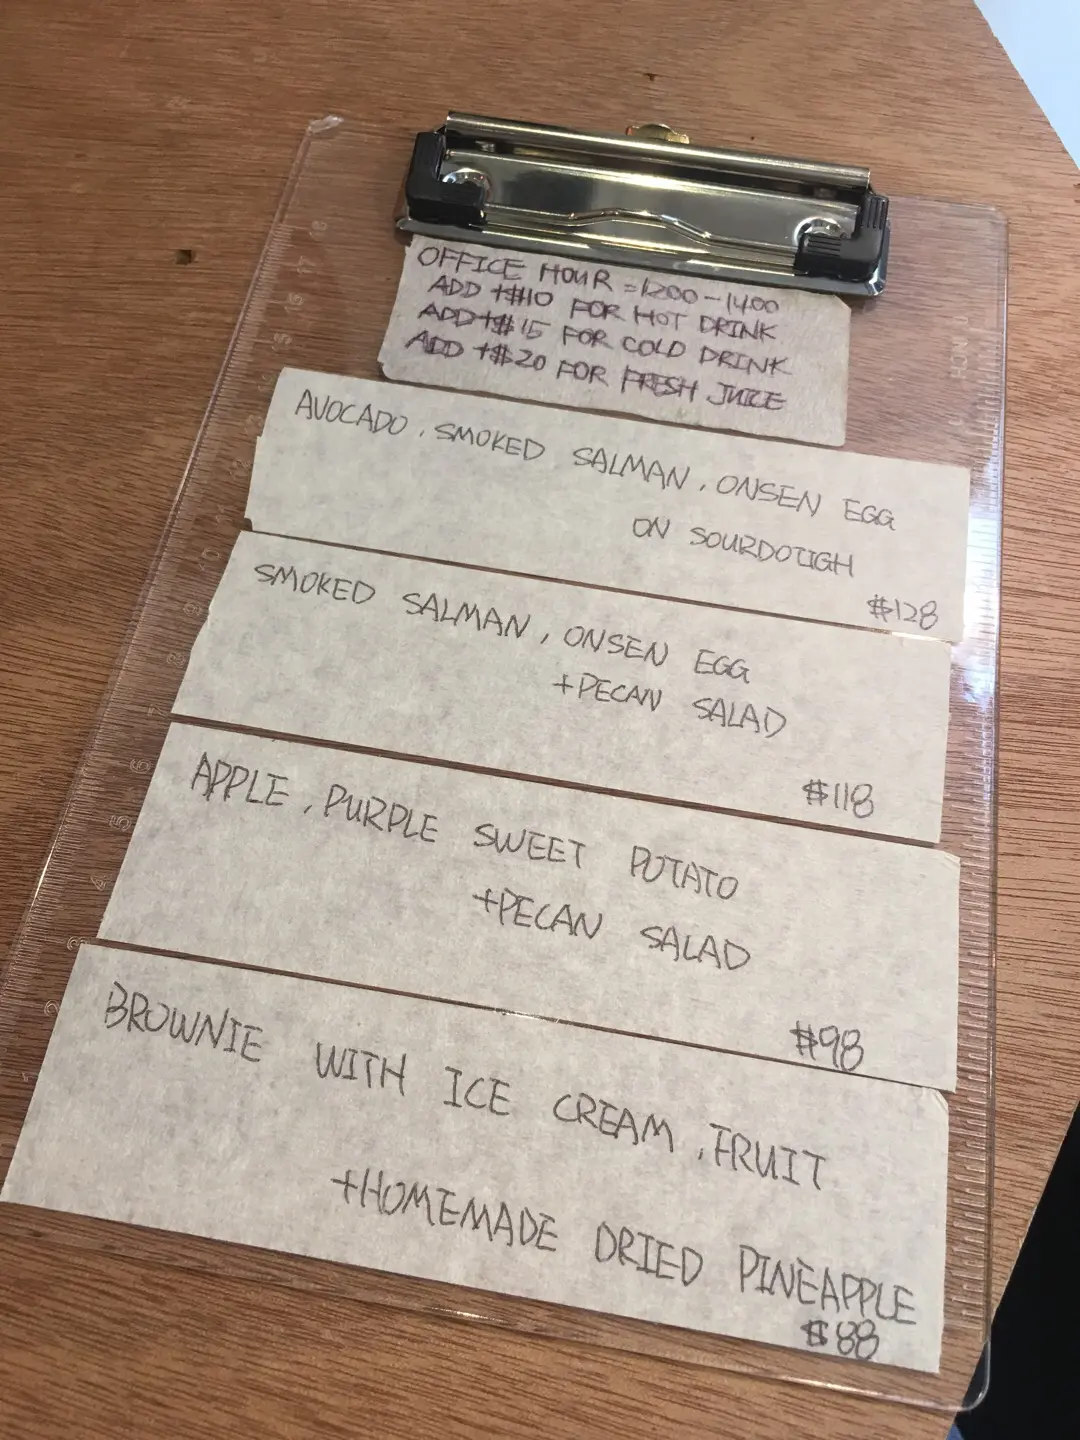 OFFICE HOUR = 1200 - 1400
ADD +$10 FOR HOT DRINK
ADD +$15 FOR COLD DRINK
ADD +$20 FOR FRESH JUICE
AVOCADO, SMOKED SALMAN, ONSEN EGG
ON SOURDOUGH
$128
SMOKED SALMAN, ONSEN EGG
+PECAN SALAD
$118
APPLE, PURPLE SWEET POTATO
+PECAN SALAD
$98
BROWNIE WITH ICE CREAM, FRUIT
+HOMEMADE DRIED PINEAPPLE
$88